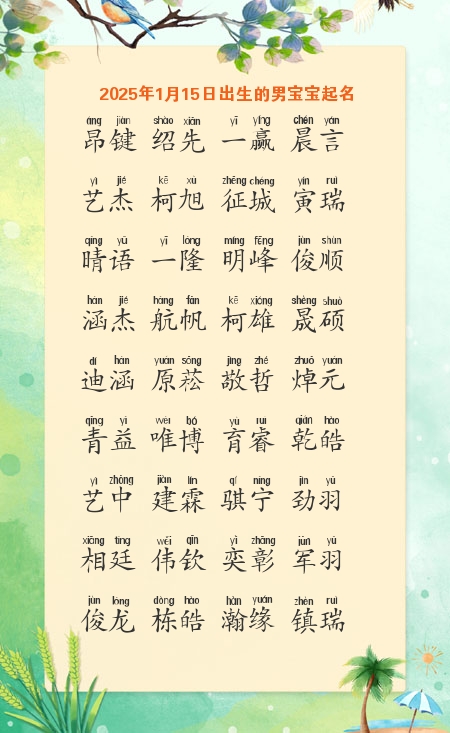 2025年1月15日出生的男宝宝起名
áng jiàn shào xiān yī yíng chén yán
昂键 绍先 一赢 晨言
yì jié kē xù zhēng chéng yín ruì
艺杰 柯旭 征城 寅瑞
qíng yǔ yī lóng míng fēng jùn shùn
晴语 一隆 明峰 俊顺
hán jié háng fān kē xióng shèng shuò
涵杰 航帆 柯雄 晟硕
dí hán yuán sōng jìng zhé zhuō yuán
迪涵 原菘 敬哲 焯元
qīng yì wéi bó yù ruì qián hào
青益 唯博 育睿 乾皓
yì zhōng jiàn lín qí níng jìn yǔ
艺中 建霖 骐宁 劲羽
xiāng tíng wěi qīn yì zhāng jūn yǔ
相廷 伟钦 奕彰 军羽
jùn lóng dòng hào hàn yuán zhèn ruì
俊龙 栋皓 瀚缘 镇瑞